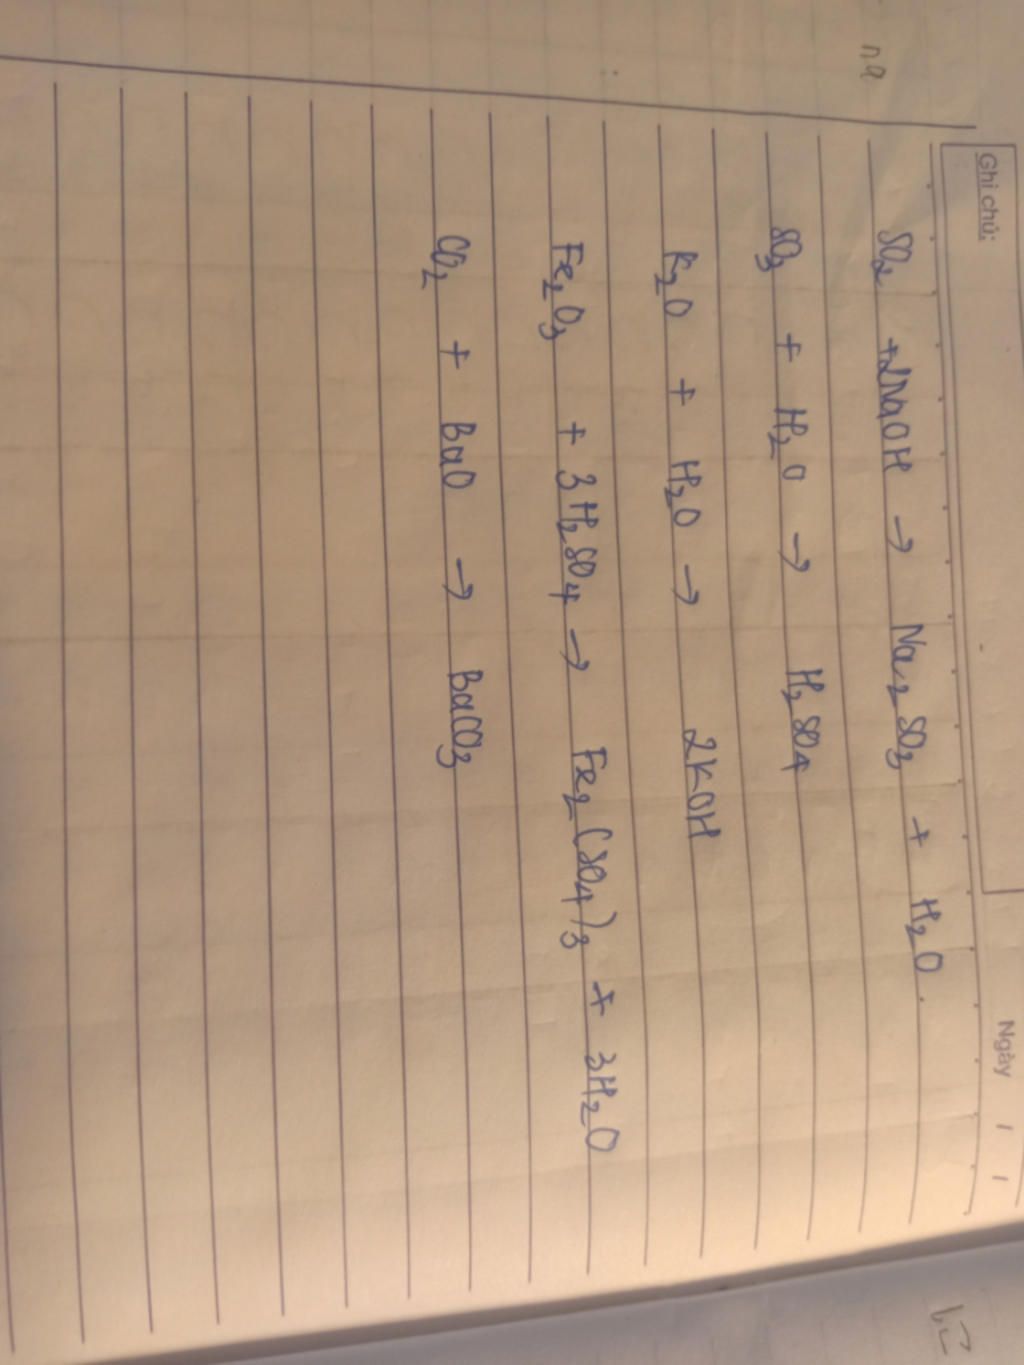 na
Ghi chú: Ngày / /
SO₂ + 2NaOH → Na₂SO₃ + H₂O.
SO₃ + H₂O → H₂SO₄
K₂O + H₂O → 2KOH
Fe₂O₃ + 3H₂SO₄ → Fe₂(SO₄)₃ + 3H₂O
CO₂ + BaO → BaCO₃